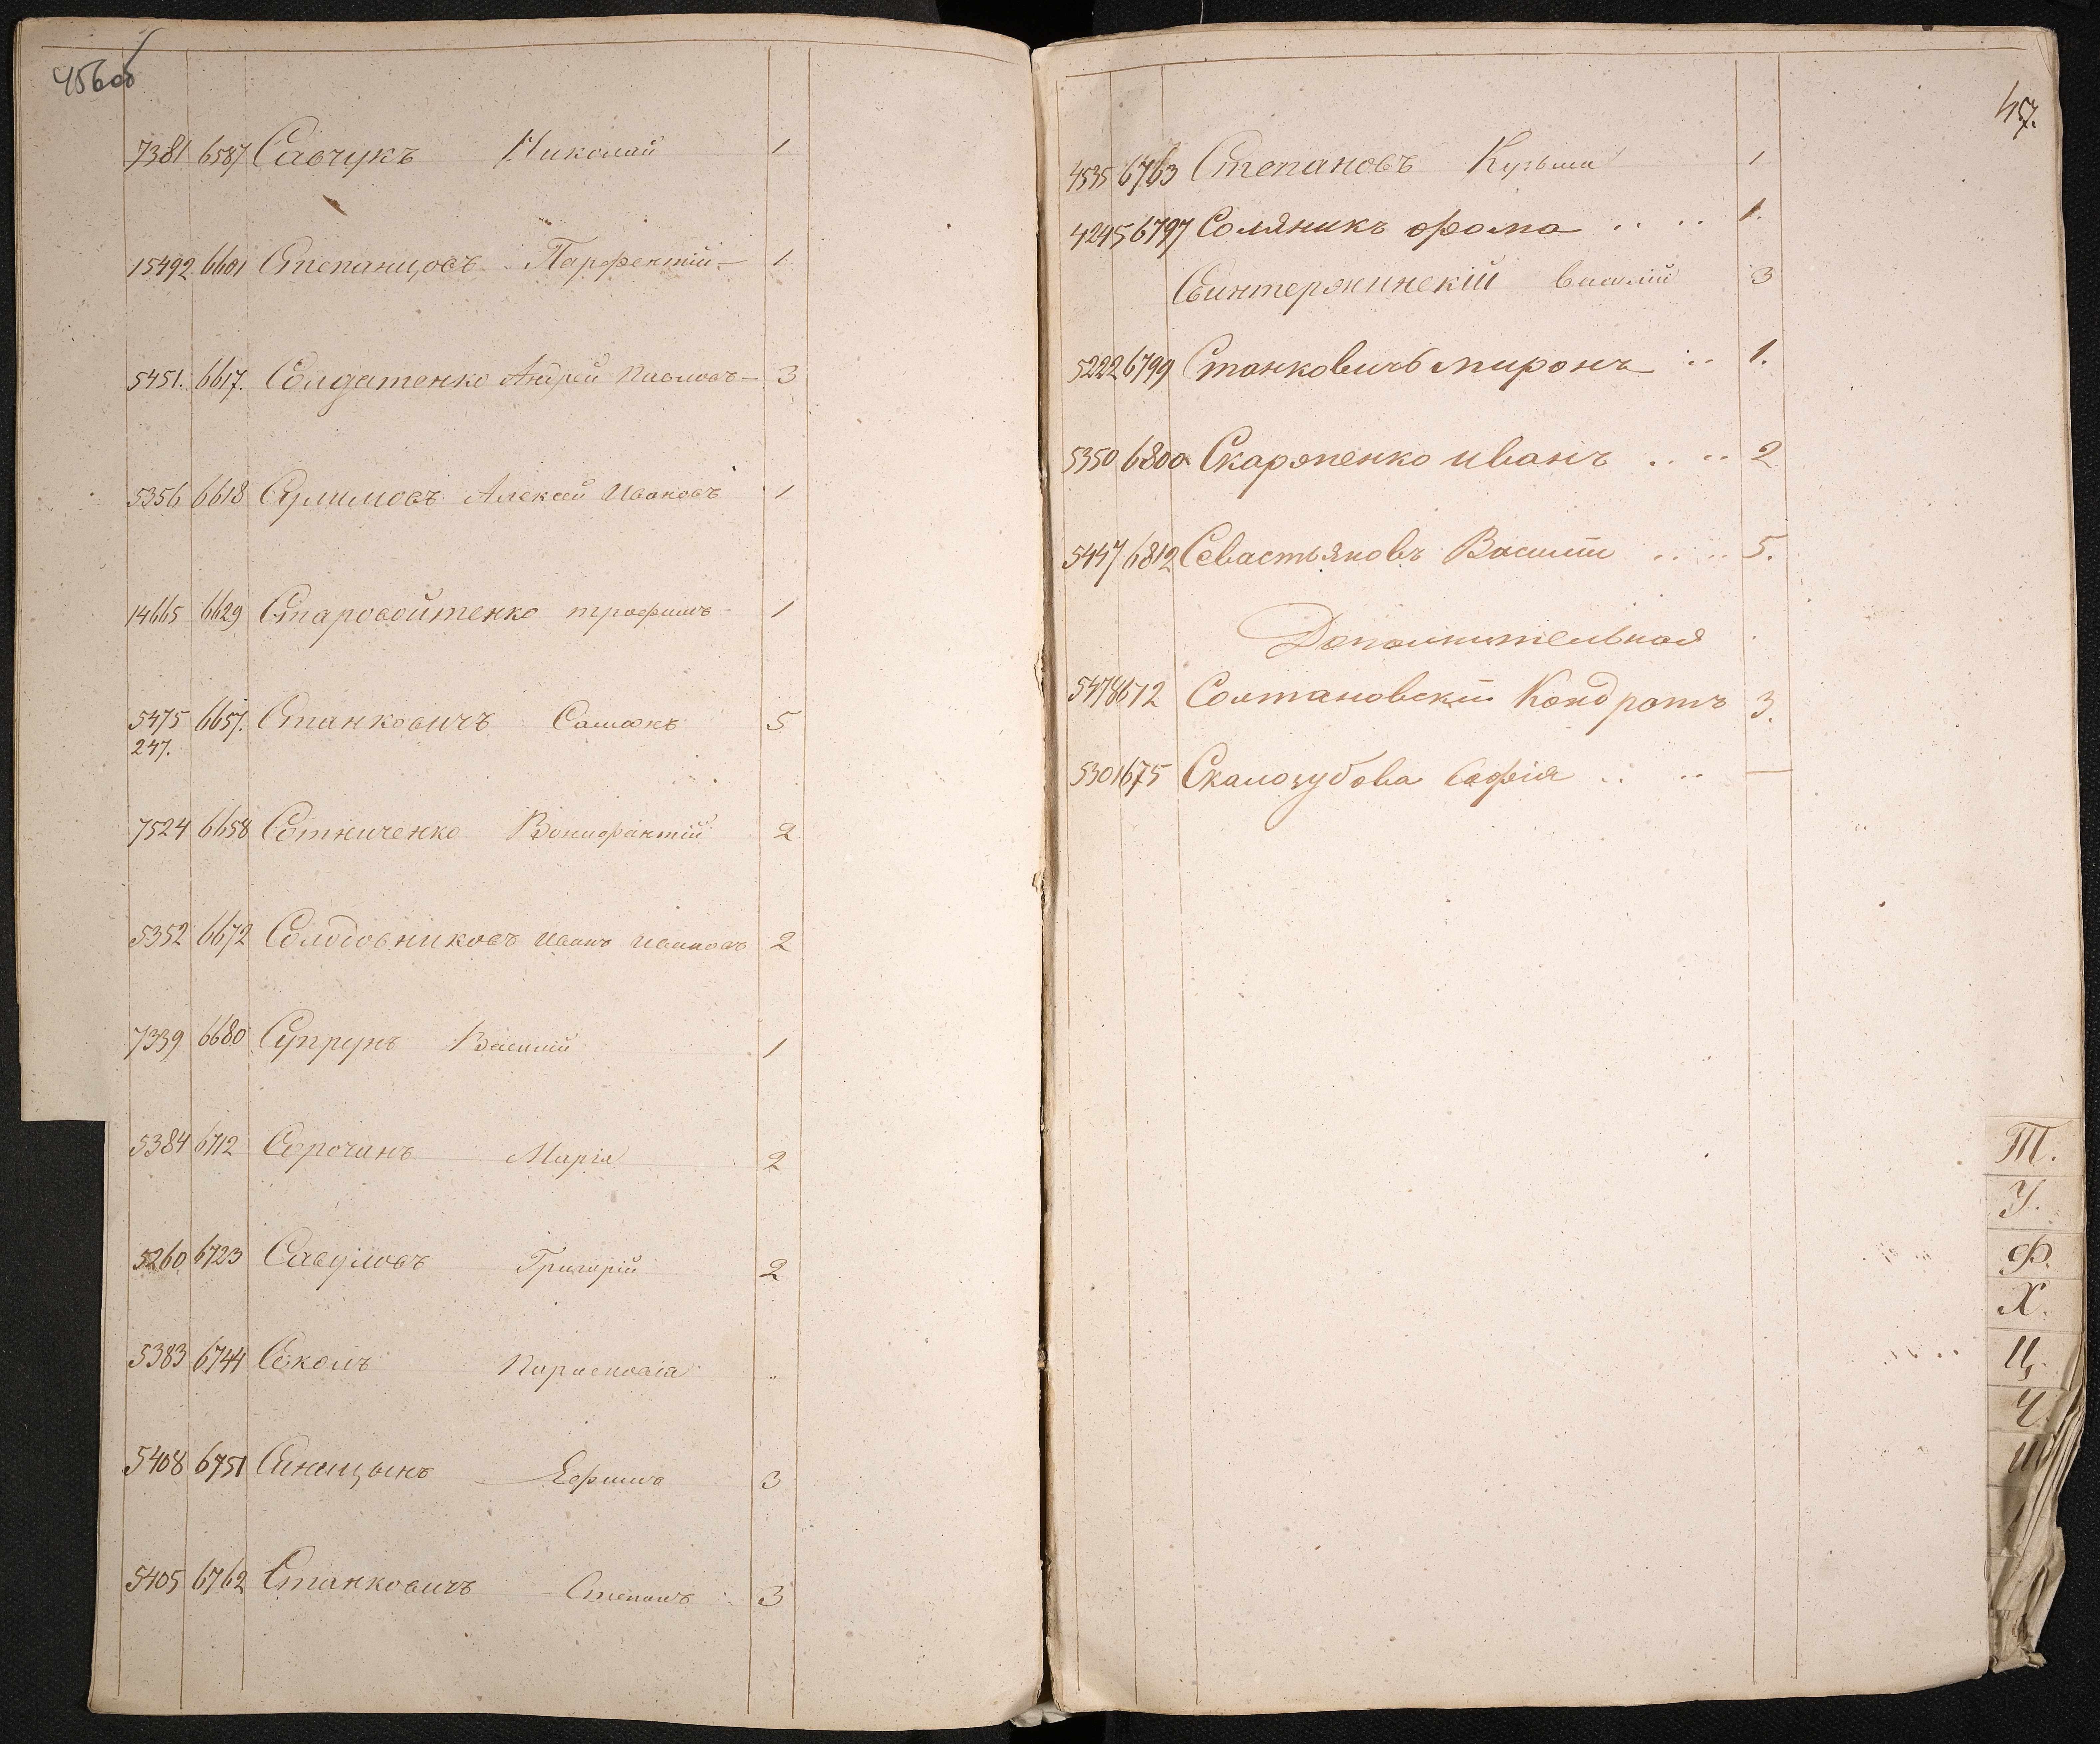 456об
7381 6587 Савчукъ Николай 1
15492 6601 Степанцовъ Парфентій 1
5451. 6617. Солдатенко Андрей Павловъ 3
5356 6618 Сулимовъ Алексей Ивановъ 1
14665 6629 Старовойтенко трофимъ 1
5475 6657. Станковичъ Самсонъ 5
247.
7524 6658 Сотниченко Вонифантій 2
5352 6672 Солодовниковъ Иванъ Ивановъ 2
7339 6680 Супрунъ Василій 1
5384 6712 Сорочанъ Марія 2
5260 6723 Савуловъ Григорій 2
5383 6744 Соколъ Парасковія ..
5408 6751 Синицынъ Ефимъ 3
5405 6762 Станковичъ Степанъ 3
457.
4535 6763 Степановъ Кузьма 1
4245 6797 Соляникъ фома .. .. 1.
Василій 3
5222 6799 Станковичъ миронъ .. 1.
5350 6800 иванъ .. .. 2
5447 6812 Севастьяновъ Василій .. .. 5.
Дополнительная
5478 672 Солтановскій Кондратъ 3.
5301 675 Скалозубова Софія .. .. —
Т.
У.
Ф.
Х.
Ц.
Ч.
Ш